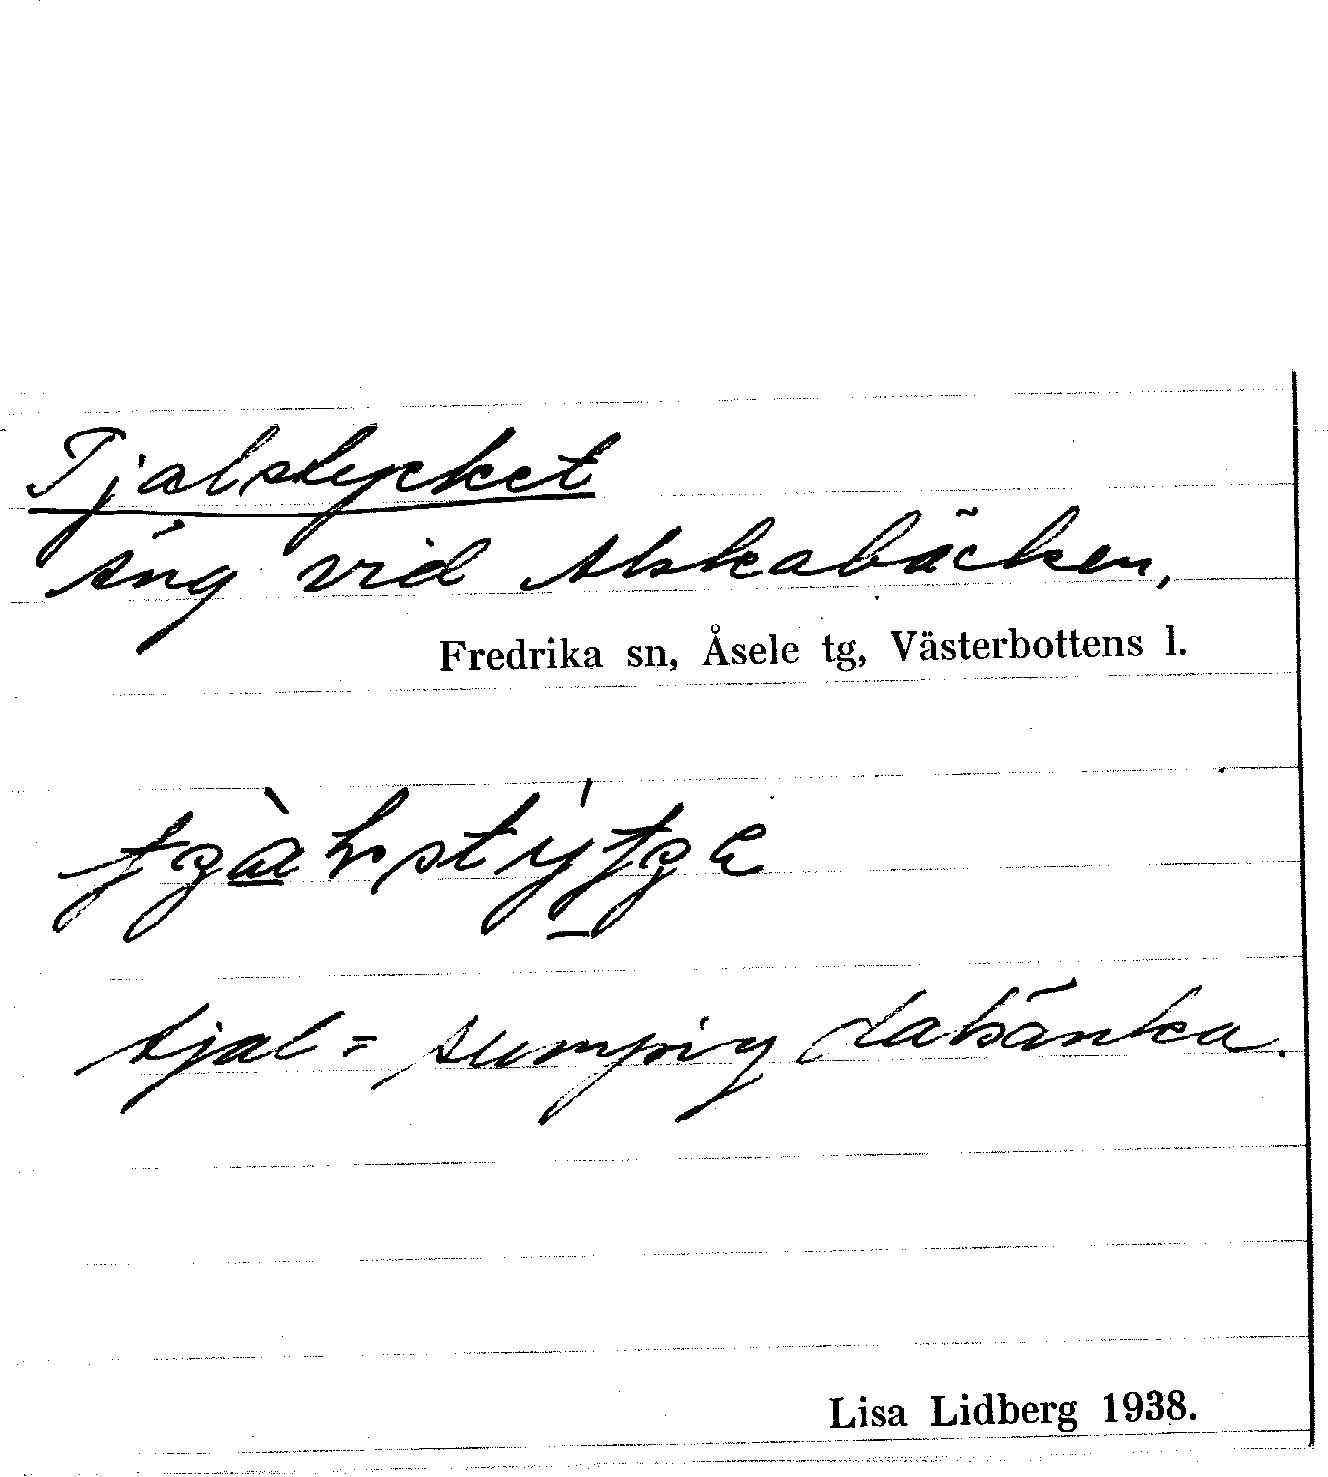 Tjalstycket
äng vid Alskabäcken,
Fredrika sn, Åsele tg, Västerbottens l.
tjal = sumpig dalsänka.
Lisa Lidberg 1938.